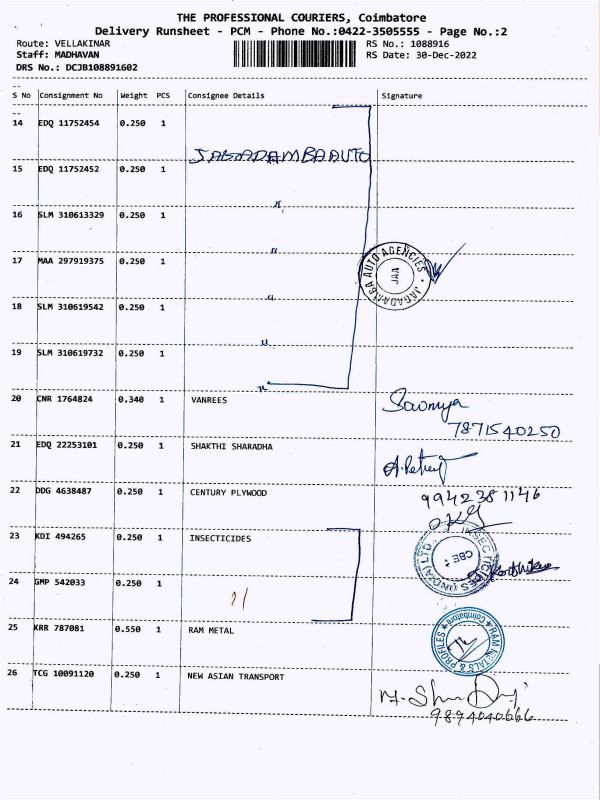 THE PROFESSIONAL COURIERS, Coimbatore
Delivery Runsheet - PCM - Phone No.:0422-3505555 - Page No.:2
Route: VELLAKINAR RS No.: 1088916
Staff: MADHAVAN RS Date: 30-Dec-2022
DRS No.: DCJB108891602
S No Consignment No Weight PCS Consignee Details Signature
14 EDQ 11752454 0.250 1
JAGADAMBA AUTO
15 EDQ 11752452 0.250 1
16 SLM 310613329 0.250 1
17 MAA 297919375 0.250 1
JAGADAMBA AUTO AGENCIES
JAA
18 SLM 310619542 0.250 1
19 SLM 310619732 0.250 1
20 CNR 1764824 0.340 1 VANREES Sowmya
7871540250
21 EDQ 22253101 0.250 1 SHAKTHI SHARADHA
22 DDG 4638487 0.250 1 CENTURY PLYWOOD 9942381146
23 KDI 494265 0.250 1 INSECTICIDES
INSECTICIDES (INDIA) LTD
CBE
24 GMP 542033 0.250 1 "
25 KRR 787081 0.550 1 RAM METAL
RAM METALS & PROFILES
Coimbatore
26 TCG 10091120 0.250 1 NEW ASIAN TRANSPORT
9894040666